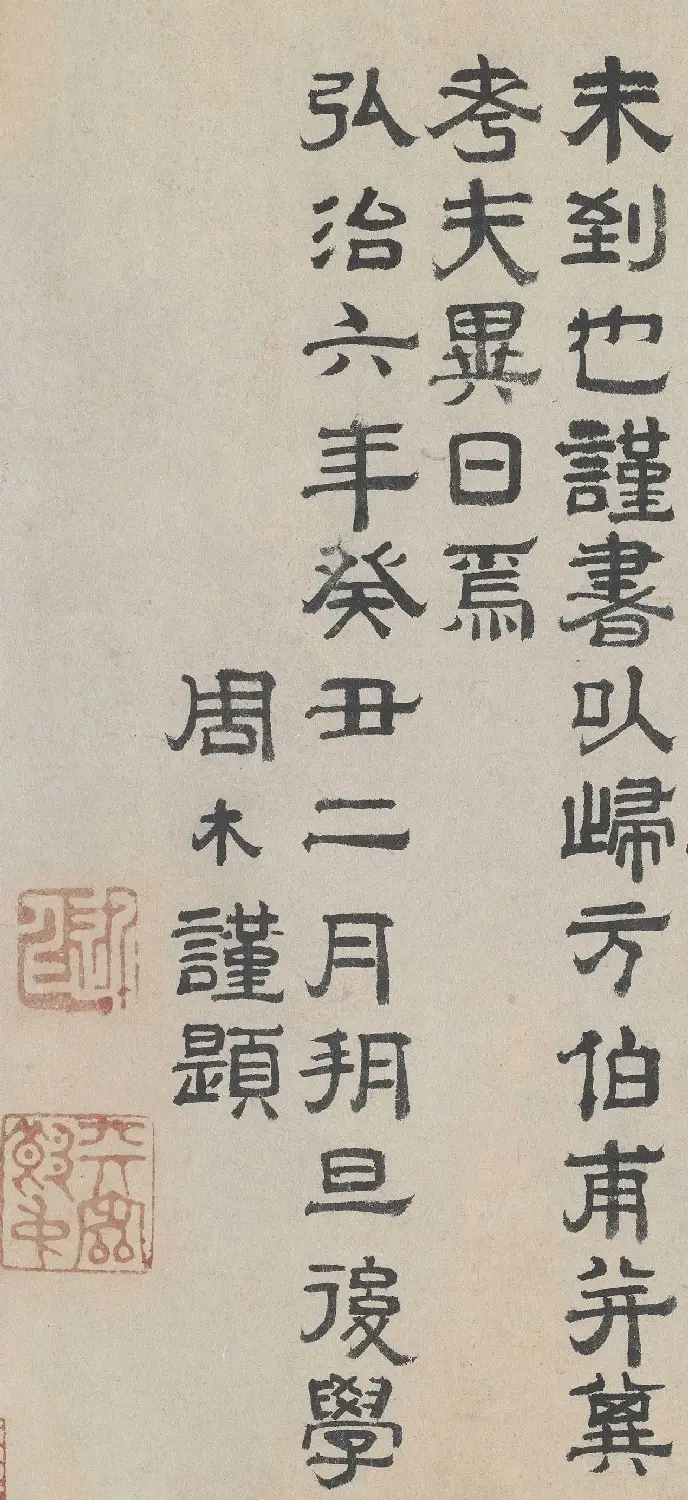 未到也謹書以歸方伯甫并冀
考夫異日焉
弘治六年癸丑二月朔旦後學
周木謹題